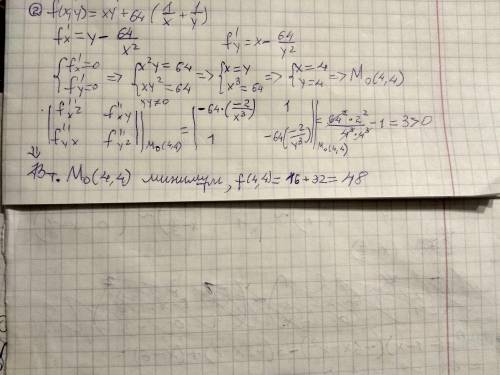 ② f(x,y) = xy + 64 (1/x + 1/y)
f'x = y - 64/x² f'y = x - 64/y²
{f'x = 0 f'y = 0 => {x²y = 64 xy² = 64 xy ≠ 0 => {x = y x³ = 64 => {x = 4 y = 4 => M₀(4,4)
|f''x² f''xy f''yx f''y²| M₀(4,4) = |-64·(-2/x³) 1 1 -64(-2/y³)| M₀(4,4) = 64²·2²/4³·4³ - 1 = 3 > 0
⇓
В т. M₀(4,4) минимум, f(4,4) = 16 + 32 = 48